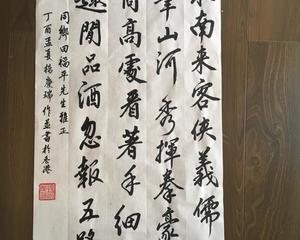 南来客俠義儒
山河秀揮拳豪
高處看著手細
閒品酒忽報五
同鄉田福平先生雅正
丁酉孟夏楊慶瑞作並書於香港